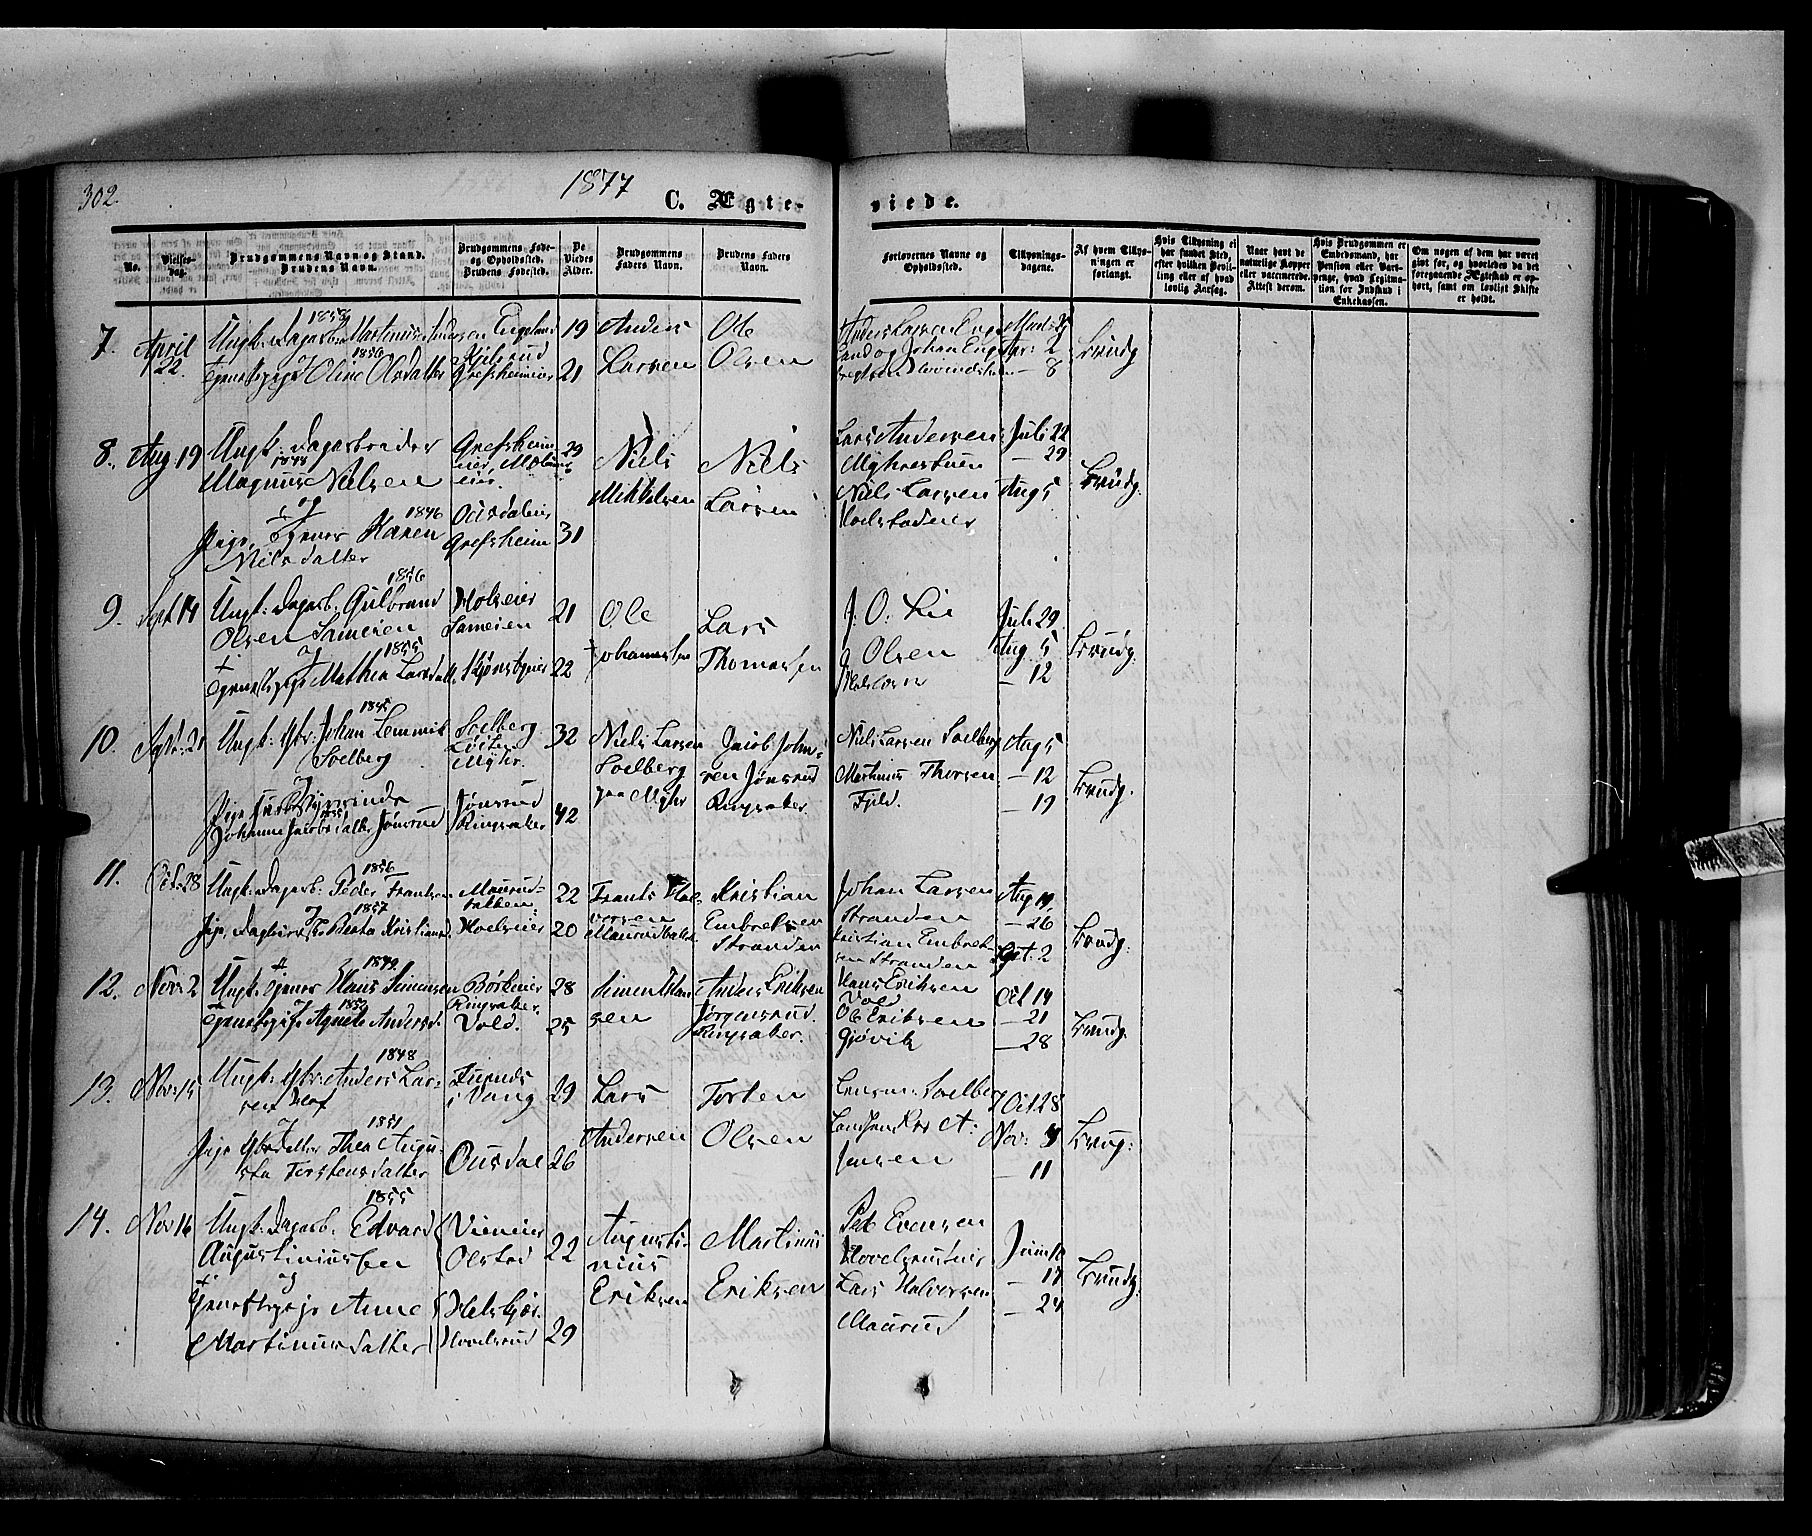 302.
1877
C. Ægte-
viede.
No.
Vielses-
dag.
Brudgommens Navn og Stand.
Brudens Navn.
Brudgommens Føde-
og Opholdssted.
Brudens Fødested.
De
Viedes
Alder.
Brudgommens
Faders Navn.
Brudens Faders
Navn.
Forlovernes Navne og
Opholdssted.
Tillysnings-
dagene.
Af hvem Tillys-
ningen er
forlangt.
Hvis Tillysning ei
har fundet Sted,
efter hvilken Bevil-
ling eller af hvad
lovlig Aarsag.
Naar havt de
naturlige Kopper
eller vaccinerede.
Attest derom.
Hvis Brudgommen er
Embedsmand, har
Pension eller Vart-
penge, hvad Legitima-
tion for Indskud i
Enkekassen.
Om nogen af dem har været
givt før, og hvorledes da det
foregaaende Ægteskab er op-
hørt, samt om lovligt Skifte
er holdt.
7. April 22
1858
Ungk. Dagarb. Martinus Andersen
og 1856
Tjenestepige Oline Olsdatter
Engeland
Grefsheimeier
19
21
Anders
Larsen
Ole
Olsen
Anders Larsen Enge-
land og Johan Enge-
Marts 25
Apr: 2
— 8
Brudg.
8. Aug 19
Ungk. Dagarbeider
1848
Magnus Nilsen
og
Pige, Tjener Karen 1846
Nilsdatter
Grefsheim
eier,
Ousdalen
Grefsheim
29
31
Niels
Mikkelsen
Niels
Larsen
Lars Andersen
Myhrestuen
Niels Larsen
Juli 22
— 29
Aug 5
Brudg.
9. Sept 14
1856
Ungk: Dagarb. Gulbrand
Olsen Sameien
og 1855
Tjenestepige Mathea Larsdatt.
Holseier
Sameien
21
22
Ole
Johannesen
Lars
Thomassen
J. O. Lie
Olsen
Juli 29.
Aug. 5
— 12
Brudg.
10. Sept: 21
1845
Ungk: Gbr: Johan Lemmik
Soelberg
og
Pige
Johanne Jacobsdatter Jønsrud
Soelberg
Løiten
Myhr.
Jønsrud
Ringsaker
32
42
Niels Larsen
Soelberg
paa Myhr
Jacob John-
sen Jønsrud
Ringsaker.
Niels Larsen Soelberg
Martinus Thorsen
Fjeld.
Aug 5
— 12
— 19
Brudg.
11. Oct: 28
1856
Ungk: Dagarb: Peder Frantsen
og 1857
Pige, Beata Kristiansd.
Maurud-
bakken.
Hoelseier
22
20
Frants Hal-
vorsen
Maurudbakk.
Kristian
Embretsen
Stranden
Johan Larsen
Stranden
Kristian Embret-
sen Stranden
Aug 19.
— 26
Sept. 2
Brudg.
12. Nov: 2
1849
Ungk. Tjener Hans Simensen
og 1852
Tjenestepige Agnete Andersd.
Børkeeier
Ringsaker.
Vold.
28
25
Simen Han-
sen
Anders Eriksen
Jørgensrud.
Ringsaker.
Hans Eriksen
Vold
Ole Eriksen
Gjøvik
Oct 14
— 21
— 28
Brudg.
13. Nov: 15
1848
Ungk: Gbr: Anders Lar-
sen
og 1851
Pige Gbrdatter Thea Augu-
sta Torstensdatter
i Vang
Ousdal
29
26
Lars
Andersen
Torsten
Olsen
Lensm. Soelberg
Jensen
Oct 28
Nov: 4
— 11
Brudg:
14. Nov 16
1855
Ungk: Dagarb. Edvard
Augustiniussen
og
Tjenestepige Anne
Martinusdatter
Vieneier
Olstad
Hovelsrud
22
29
Augusti-
nius
Eriksen
Martinus
Eriksen
Peter Evensen
Lars Halvorsen
Maurud
Juni 10
— 17
— 24
Brudg.